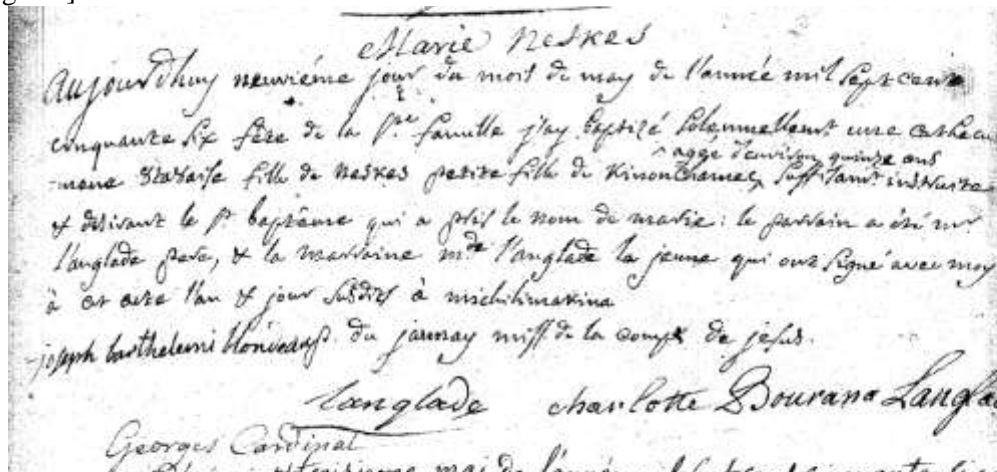 Marie neskes
aujourdhuy neuviéme jour du mois de may de l'année mil sept cent
cinquante six fête de la ste famille j'ay baptizé solennellemt une cathecu
agée d'environ quinze ans
-mene fille de neskes petite fille de Kinonchamee suffisamt instruite
& désirant le st baptême qui a pris le nom de marie: le parrain a été mr
l'anglade pere, & la marraine mde l'anglade la jeune qui ont signé avec moy
à cet acte l'an & jour susdits à michilimakina
joseph barthelemi du jaunay miss. de la comp. de jesus.
Langlade charlotte Bourana Langla
Georges Cardinal
mai de l'année